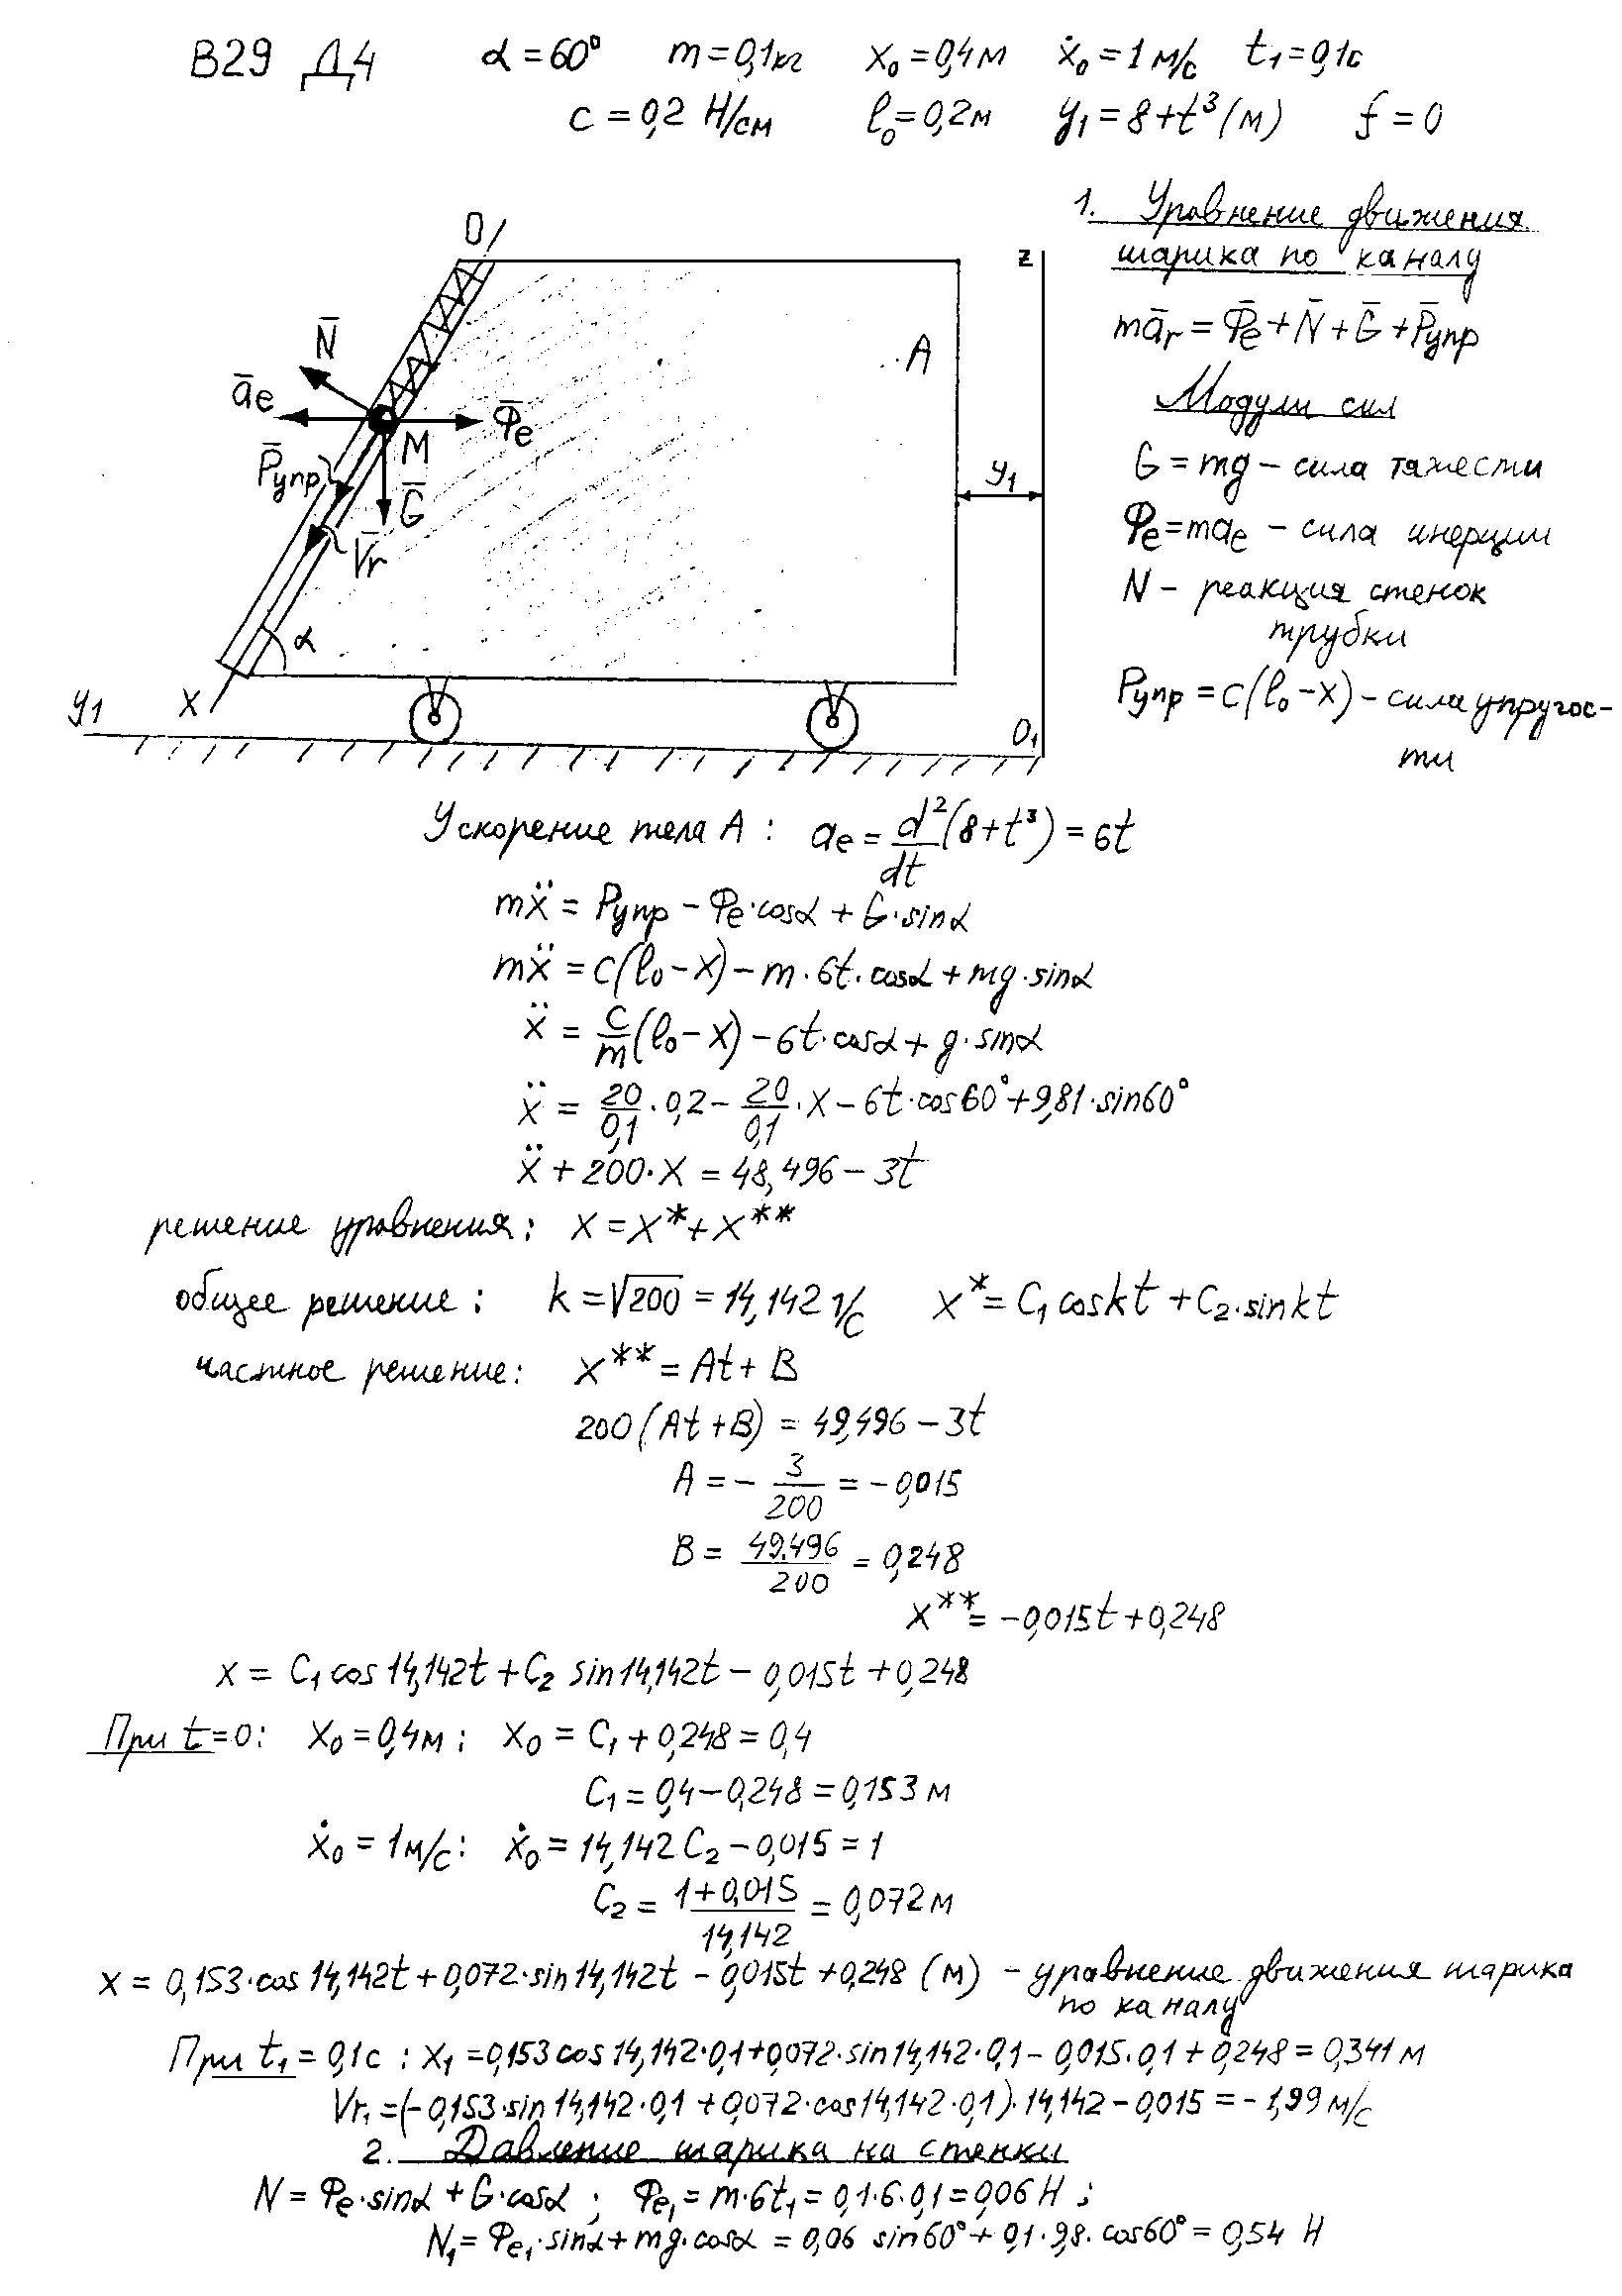 В29 Д4 α = 60° m = 0,1кг x₀ = 0,4м ẋ₀ = 1 м/с t₁ = 0,1с
c = 0,2 Н/см l₀ = 0,2м y₁ = 8 + t³ (м) f = 0
1. Уравнение движения
шарика по каналу
mā_r = Φ̄_e + N̄ + Ḡ + P̄_упр
Модули сил
G = mg – сила тяжести
Φ_e = ma_e – сила инерции
N – реакция стенок
трубки
P_упр = c(l₀ – x) – сила упругос-
ти
O
z
N̄
A
ā_e
Φ̄_e
M
P̄_упр
Ḡ
y₁
V̄_r
α
y₁
x
O₁
Ускорение тела A : a_e = d²/dt (8 + t³) = 6t
mẍ = P_упр – Φ_e·cosα + G·sinα
mẍ = c(l₀ – x) – m·6t·cosα + mg·sinα
ẍ = c/m (l₀ – x) – 6t·cosα + g·sinα
ẍ = 20/0,1 · 0,2 – 20/0,1 · x – 6t·cos60° + 9,81·sin60°
ẍ + 200·x = 48,496 – 3t
решение уравнения: x = x* + x**
общее решение: k = √200 = 14,142 1/с x* = C₁ cos kt + C₂·sin kt
частное решение: x** = At + B
200(At + B) = 49,496 – 3t
A = – 3/200 = – 0,015
B = 49.496/200 = 0,248
x** = –0,015t + 0,248
x = C₁ cos 14,142t + C₂ sin 14,142t – 0,015t + 0,248
При t = 0: x₀ = 0,4м ; x₀ = C₁ + 0,248 = 0,4
C₁ = 0,4 – 0,248 = 0,153 м
ẋ₀ = 1м/с: ẋ₀ = 14,142 C₂ – 0,015 = 1
C₂ = 1 + 0,015/14,142 = 0,072 м
x = 0,153·cos 14,142t + 0,072·sin 14,142t – 0,015t + 0,248 (м) – уравнение движения шарика
по каналу
При t₁ = 0,1с : x₁ = 0,153 cos 14,142·0,1 + 0,072·sin 14,142·0,1 – 0,015·0,1 + 0,248 = 0,341 м
Vr₁ = (– 0,153·sin 14,142·0,1 + 0,072·cos 14,142·0,1)·14,142 – 0,015 = – 1,99 м/с
2. Давление шарика на стенки
N = Φ_e·sinα + G·cosα ; Φ_e₁ = m·6t₁ = 0,1·6·0,1 = 0,06 Н ;
N₁ = Φ_e₁·sinα + mg·cosα = 0,06 sin60° + 0,1·9,8·cos60° = 0,54 Н